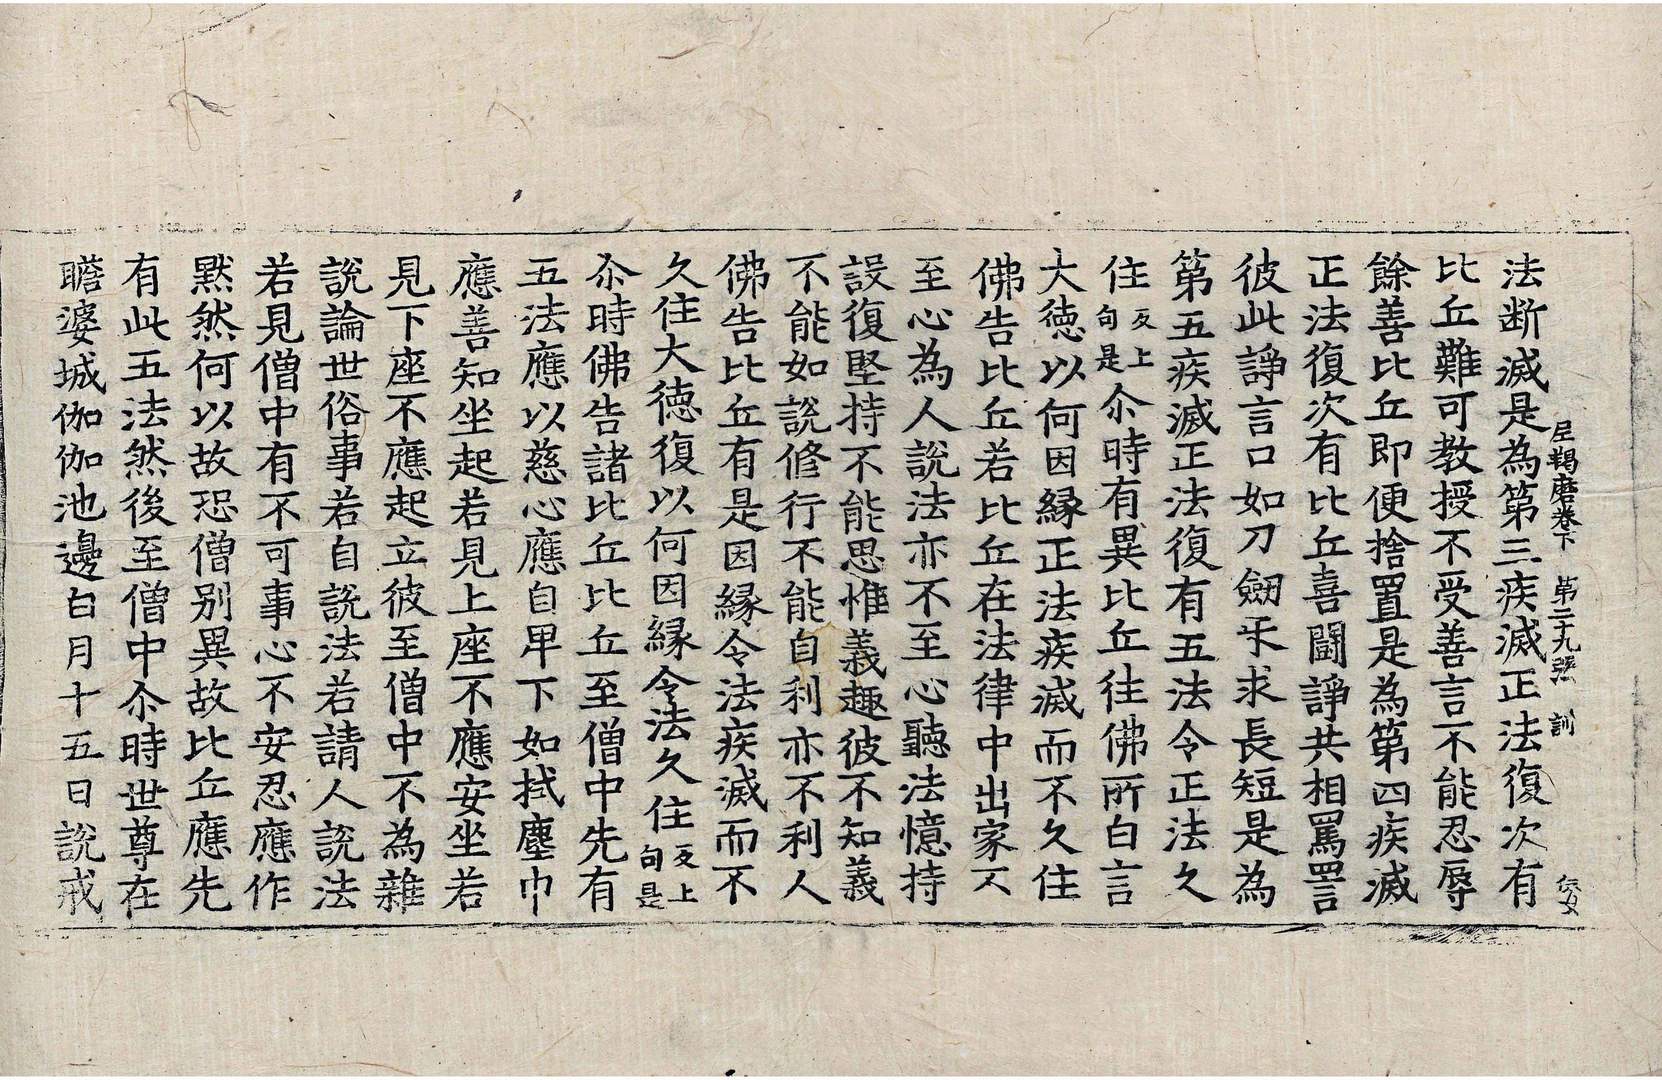 尼羯磨卷下 第二十九張 訓
法斷滅是為第三疾滅正法復次有
比丘難可教授不受善言不能忍辱
餘善比丘即便捨置是為第四疾滅
正法復次有比丘喜鬪諍共相罵詈
彼此諍言口如刀劒乎求長短是為
第五疾滅正法復有五法令正法久
住反上句是尒時有異比丘往佛所白言
大徳以何因縁正法疾滅而不久住
佛告比丘若比丘在法律中出家不
至心為人說法亦不至心聽法憶持
設復堅持不能思惟義趣彼不知義
不能如說修行不能自利亦不利人
佛告比丘有是因縁令法疾滅而不
久住大徳復以何因縁令法久住反上句是
尒時佛告諸比丘比丘至僧中先有
五法應以慈心應自卑下如拭塵巾
應善知坐起若見上座不應安坐若
見下座不應起立彼至僧中不為雜
說論世俗事若自說法若請人說法
若見僧中有不可事心不安忍應作
默然何以故恐僧別異故比丘應先
有此五法然後至僧中尒時世尊在
瞻婆城伽伽池邊白月十五日說戒